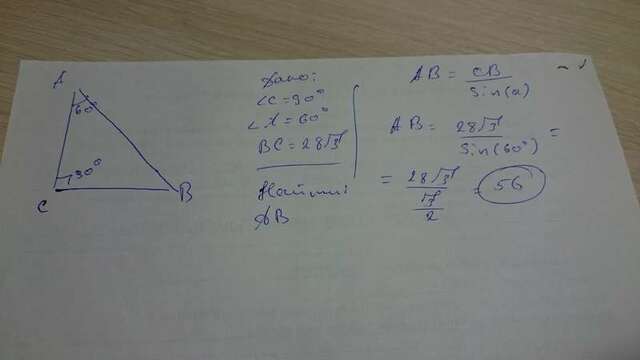 A
60°
90°
C
B
Дано:
∠C=90°
∠A=60°
BC=28√3
Найти:
AB
AB = CB / Sin(a)
AB = 28√3 / Sin(60°) =
= 28√3 / (√3 / 2) = 56